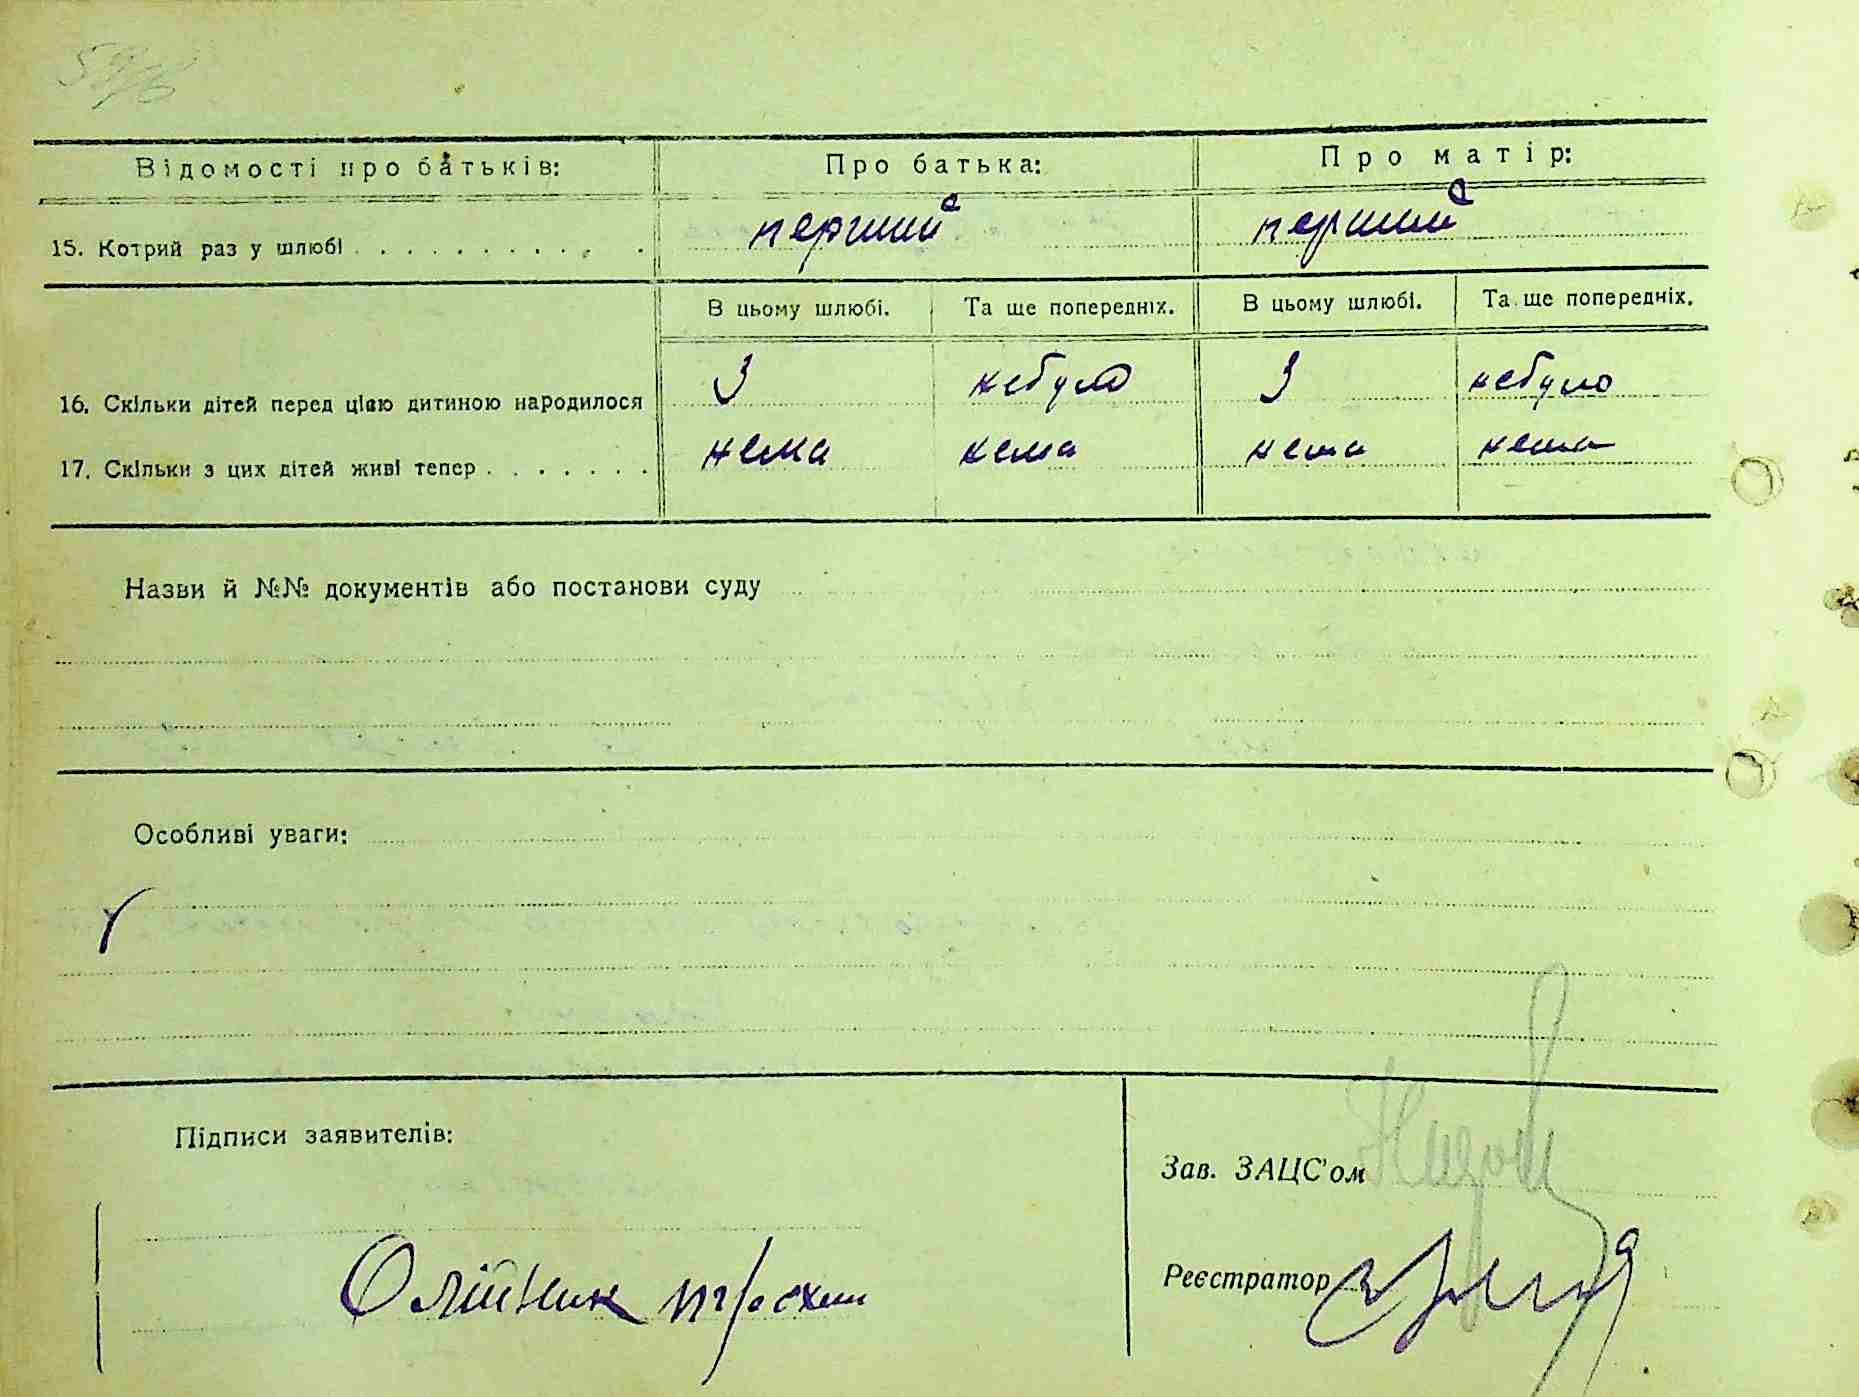 Відомості про батьків: Про батька: Про матір:
15. Котрий раз у шлюбі перший перший
В цьому шлюбі. Та ще попередніх. В цьому шлюбі. Та ще попередніх.
16. Скільки дітей перед цією дитиною народилося 3 небуло 3 небуло
17. Скільки з цих дітей живі тепер нема нема нема нема
Назви й №№ документів або постанови суду
Особливі уваги:
Підписи заявителів:
Зав. ЗАЦС'ом
Реєстратор
Олійник